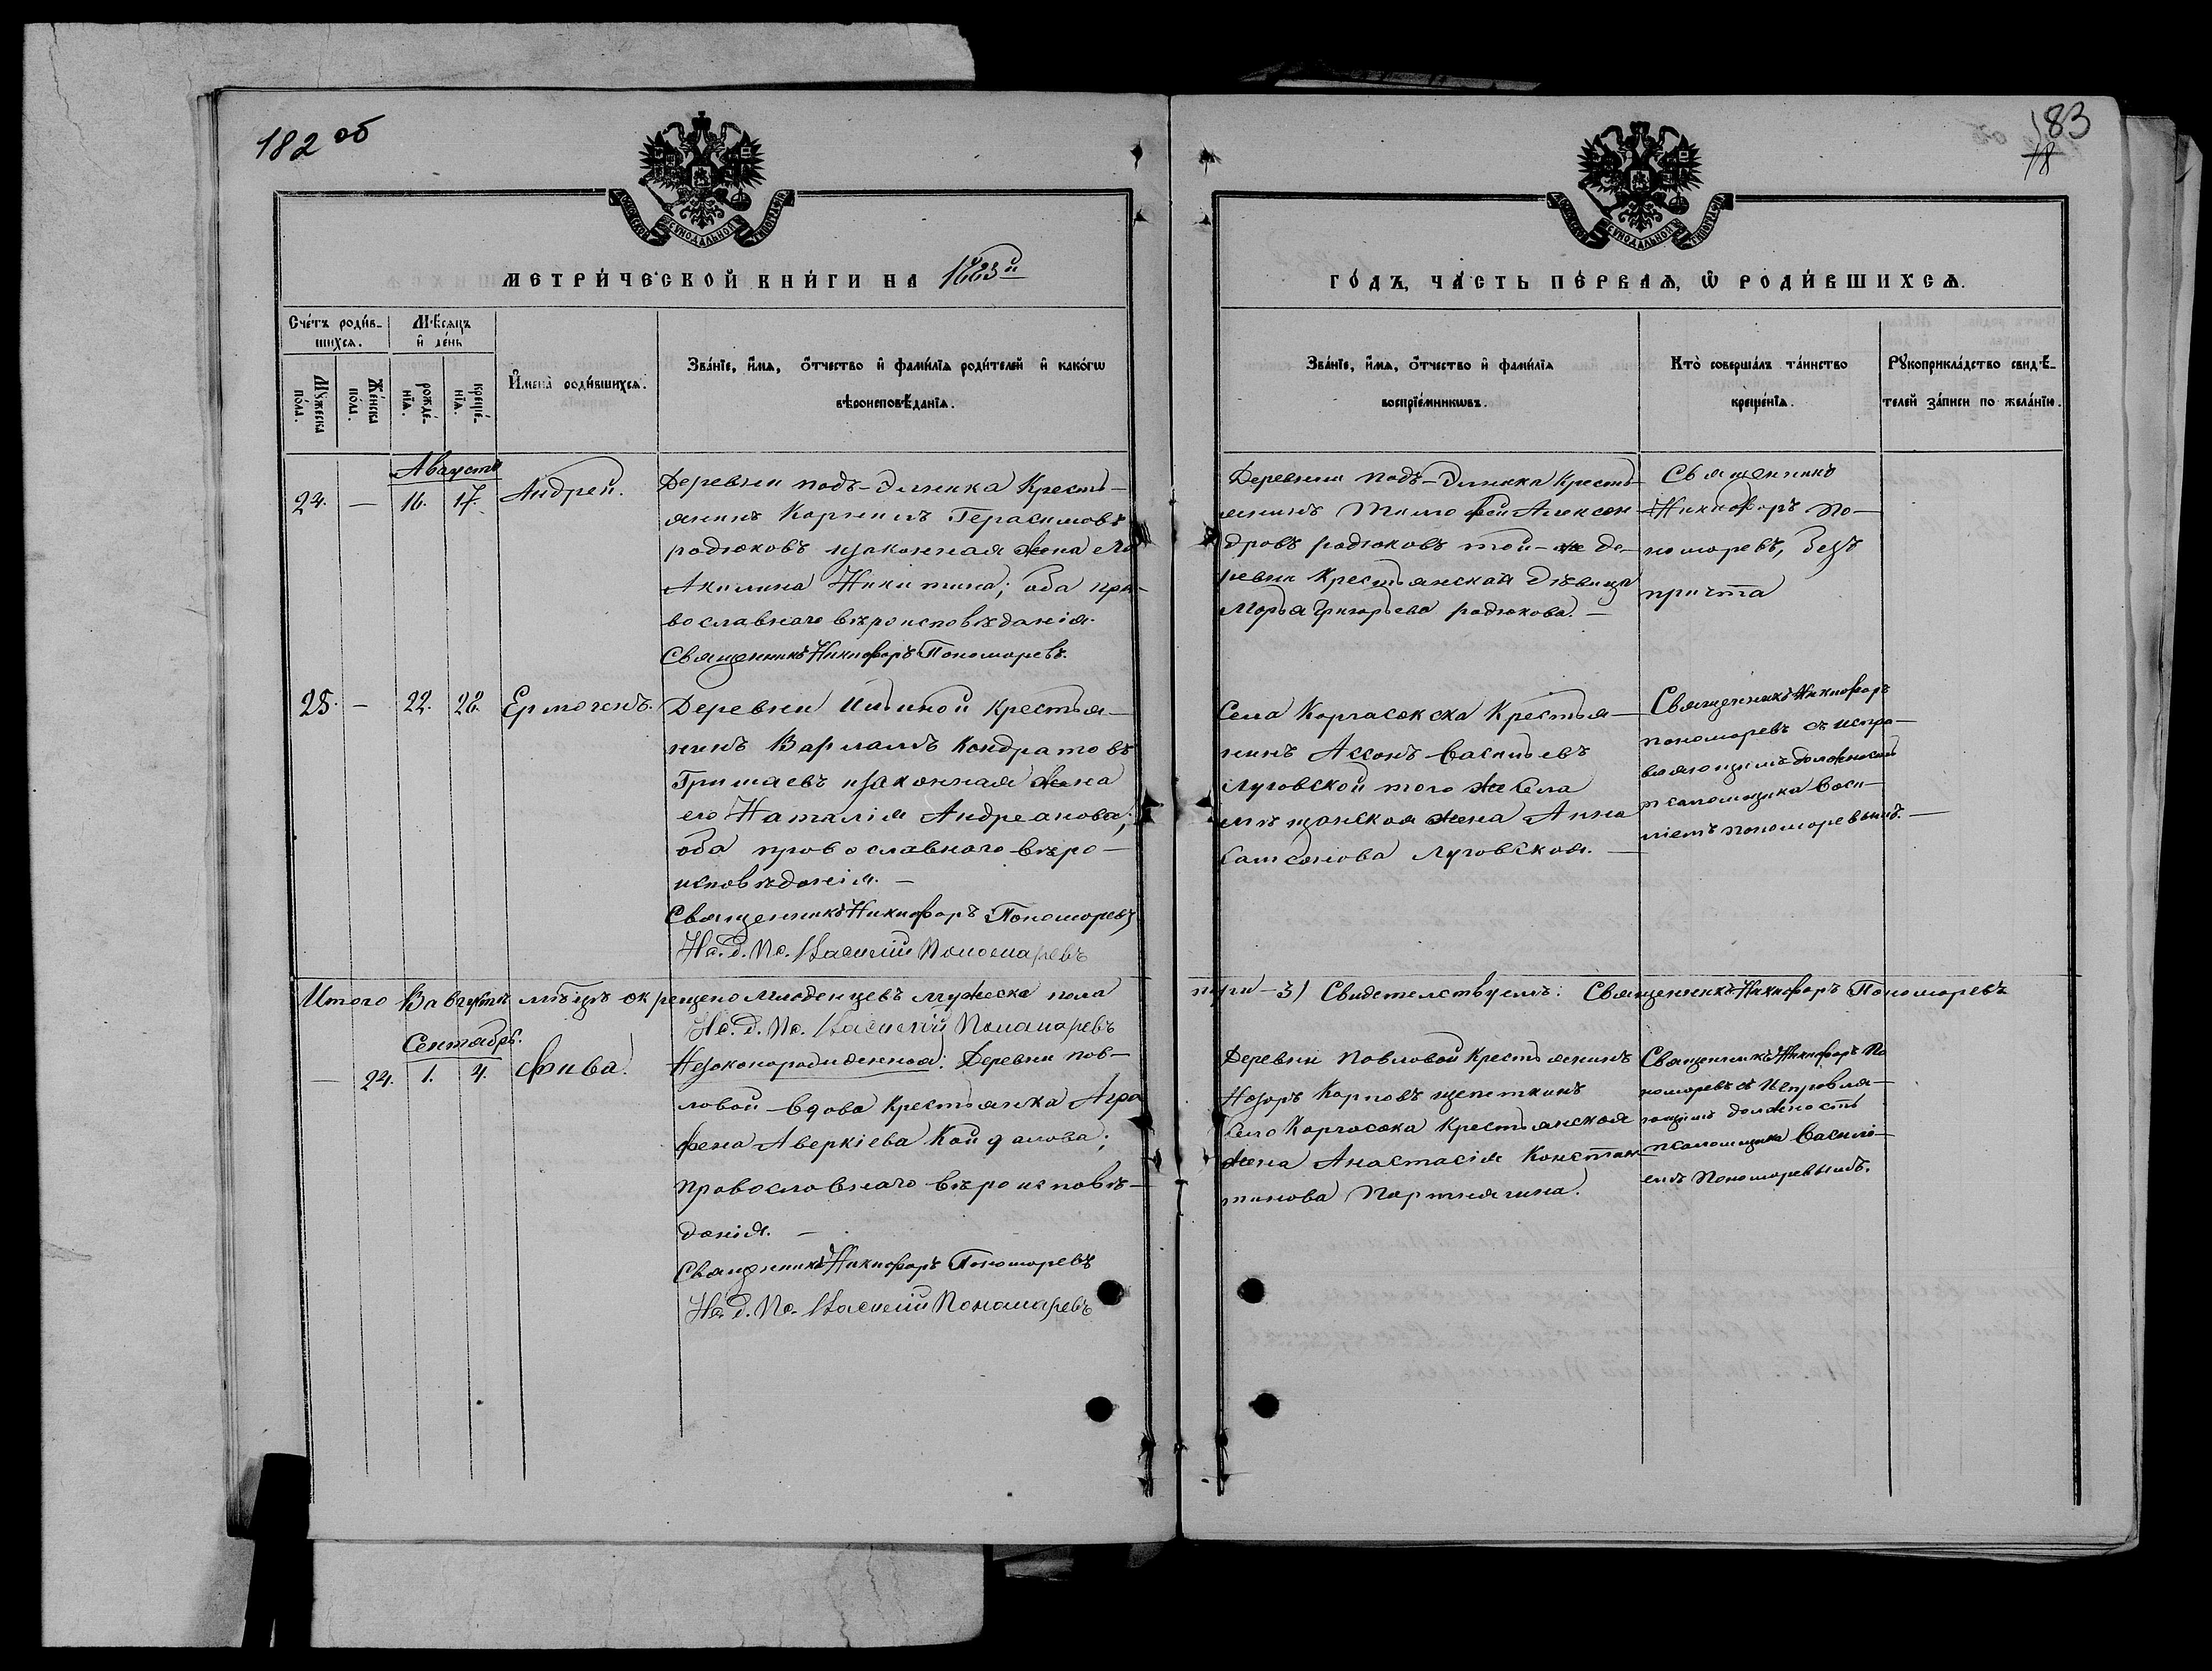 182 об
МЕТРИ́ЧЕСКОЙ КНИ́ГИ НА 1883й
Сче́тъ роди́в-
шихсѧ.
Мѣ́сѧцъ
и҆ де́нь
Мꙋ́жеска
по́ла.
Же́нска
по́ла.
рожде́-
нїѧ.
креще́-
нїѧ.
И҆мена̀ роди́вшихсѧ.
Зва́нїе, и҆́мѧ, ѻ҆́тчество и҆ фами́лїѧ роди́телей и҆ како́гѡ
вѣроисповѣ́данїѧ.
Августъ
24. — 16. 17. Андрей.
Деревни подъ-Ельника Кресть-
янинъ Карнилъ Герасимовъ
родюковъ изаконная жена его
Акилина Никитина; оба пра-
вославнаго вѣроисповѣданія.
Священникъ Никифоръ Пономаревъ.
25. — 22. 28. Ермогенъ.
Деревни Ильиной Крестья-
нинъ Варлаамъ Кондратовъ
Гришаевъ изаконная жена
его Наталія Андреанова;
оба православнаго вѣро-
исповѣданія. —
Священникъ Никифоръ Пономаревъ
На. д. Пс. Василій Пономаревъ
Итого Въ августѣ мѣсцѣ окрещено младенцевъ мужеска пола
На. д. Пс. Василій Пономаревъ
Сентябрь.
— 24. 1. 4. Фива.
Незаконорожденная: Деревни пав-
ловой вдова крестьянка Агра
фена Аверкіева Кайдалова;
православнаго вѣроисповѣ-
данія. —
Священникъ Никифоръ Пономаревъ
На. д. Пс. Василій Пономаревъ
183
18
ГО́ДЪ, ЧА́СТЬ ПЕ́РВАѦ, Ѡ҆ РОДИ́ВШИХСѦ.
Зва́нїе, и҆́мѧ, ѻ҆́тчество и҆ фами́лїѧ
воспрїе́мникѡвъ.
Кто̀ соверша́лъ та́инство
креще́нїѧ.
Рꙋкоприкла́дство свидѣ́-
телей за́писи по жела́нїю.
Деревни подъ-Ельника Кресть-
янинъ Тимофей Алексан-
дровъ родюковъ той-же де-
ревни Крестьянская дѣвица
Марья Григорьева родюкова. —
Священникъ
Никифоръ По-
номаревъ, безъ
причта
Села Каргасокска Крестья-
нинъ Ассонъ Васильевъ
Луговской того же Села
мѣщанская жена Анна
Самсонова Луговская. —
Священникъ Никифоръ
пономаревъ съ испра-
вляющимъ должность
псаломщика Васи-
ліемъ пономаревымъ. —
три — 3) Свидетелствуемъ: Священникъ Никифоръ Пономаревъ
Деревни Павловой Крестьянинъ
Назоръ Карповъ щепеткинъ
Села Каргасока Крестьянская
жена Анастасія Констан-
тинова Партнягина.
Священникъ Никифоръ По
номаревъ съ Исправля-
ющимъ должность
псаломщика Василі-
емъ Пономаревымъ.